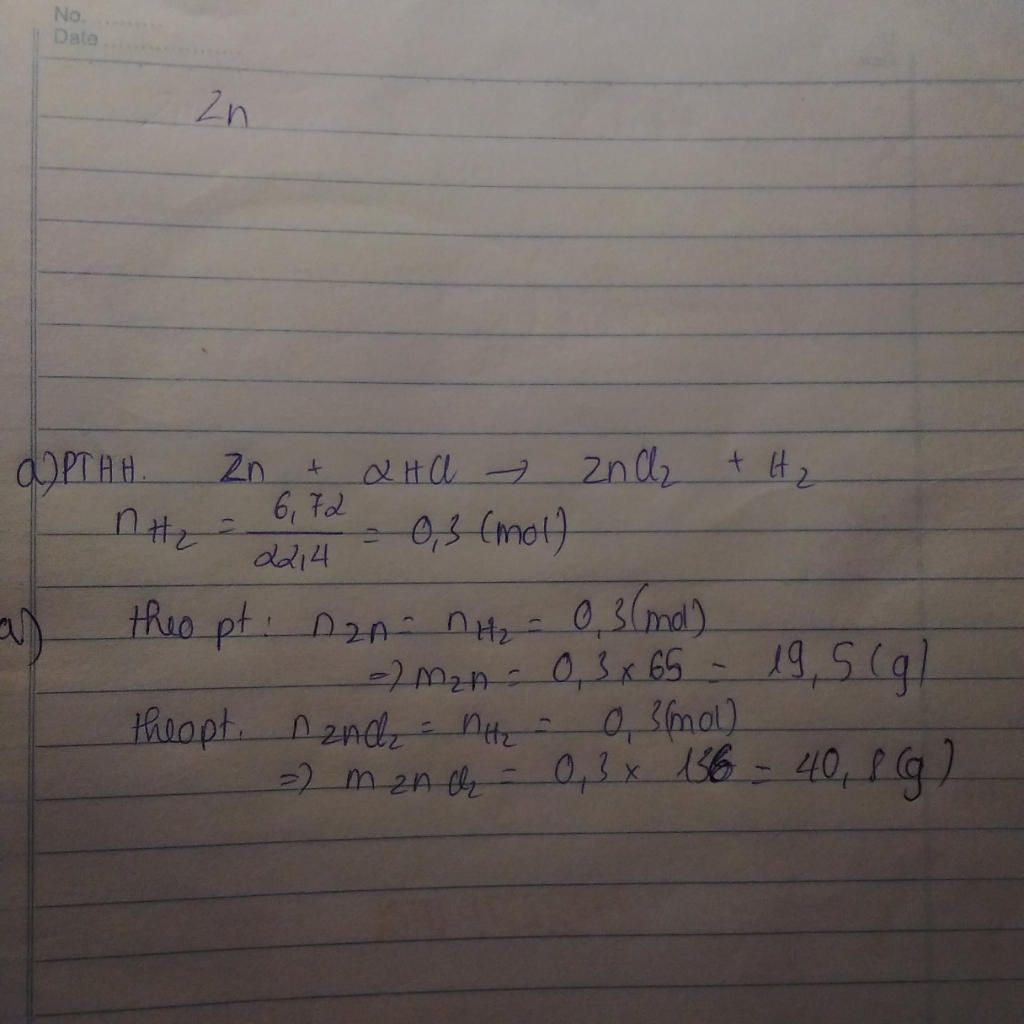 No. ..........
Date ....................
Zn
a) PTHH. Zn + 2HCl → ZnCl₂ + H₂
nH₂ = 6,72 / 22,4 = 0,3 (mol)
a) theo pt: nZn = nH₂ = 0,3 (mol)
=> mZn = 0,3 x 65 = 19,5 (g)
theo pt. nZnCl₂ = nH₂ = 0,3 (mol)
=> mZnCl₂ = 0,3 x 136 = 40,8 (g)